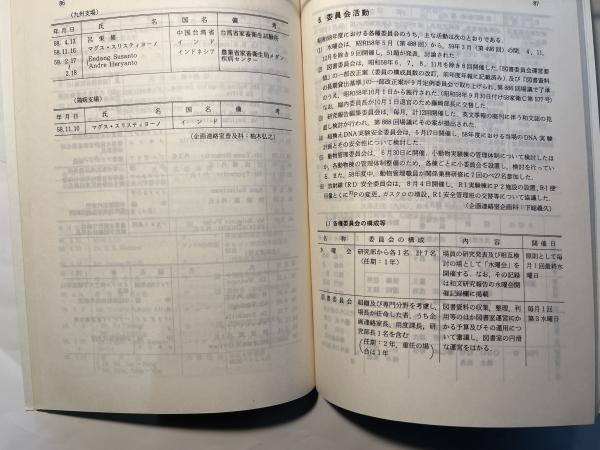 86
(九州支場)
年月日 氏 名 国 名 備 考
58. 4.13 呂 栄 修 中国台湾省 台湾省家畜衛生試験所
58.11.16 マグス・スリスティヨーノ インド
59. 2.17 Endang Susanto インドネシア 農業省家畜衛生局メダン
2.18 Andre Haryanto 疾病センター
(鶏病支場)
年月日 氏 名 国 名 備 考
58.11.10 マグス・スリスティヨーノ インド
(企画連絡室普及科:柚木弘之)
87
5. 委員会活動
昭和58年度における各種委員会のうち、主な活動は次のとおりである。
(1) 水曜会は、昭和58年5月(第488回)から、59年3月(第496回)の間、4、11、
12月を除き9回開催し、51題が発表、討論された。
昭和58年度は、6、7、8、11月を除き8回開催した。「図書委員会運営要
領」の一部改正案(委員の構成員数の改訂、前年度年報に記載済み)及び「図書資料
の長期貸出基準」の一部改正案が9月定例委員会で取り上げられ、第866回場議で了承
のうえ、昭和58年10月1日から施行された。(昭和58年9月30日付け58家衛C第577号)
なお、腸内委員が10月1日退官のため藤崎部長に交替した。
研究報告編集委員会は、毎月、計12回開催した。英文季報の廃刊に伴う和文誌の見
直し検討が行われ、第868回場議にその案が提出された。
組換えDNA実験安全委員会は、6月17日開催し、58年度における当場のDNA実験
計画とその安全性について検討した。
動物管理委員会は、6月30日に開催、小動物実験棟の管理体制について検討したほ
か、各動物棟の管理体制整備のため、各棟ごとに小委員会を設置し、検討を行ってい
る。また、58年度中、動物管理職員が関係業務研修に7回のべ27名参加した。
放射線(RI)安全委員会は、8月4日開催し、RI実験棟にP2施設の設置、RI使
用量とくに³²Pの変更、ガスクロの増設、RI安全管理班の交替等について協議した。
(企画連絡室企画科:下総義久)
1) 各種委員会の構成等
名 称 委員会の構成 内 容 開催日
水 曜 会 研究部から各1名 計7名 場員の研究発表及び相互検 原則として毎
(任期:1年) 討の場として「水曜会」を 月1回最終水
開催する。なお、その記録 曜日
は和文研究報告の水曜会開
催記録欄に掲載
図書委員会 組織及び専門分野を考慮し、 図書資料の収集、整理、利 毎月1回
場長が任命した者、うち企 用等のほか図書室運営にか 第3水曜日
画連絡室長、用度課長、研 かる予算及びその運用につ
究部長1名を含む いて審議し、図書室の円滑
(任期:2年、重任の場 な運営をはかる。
合は1年)